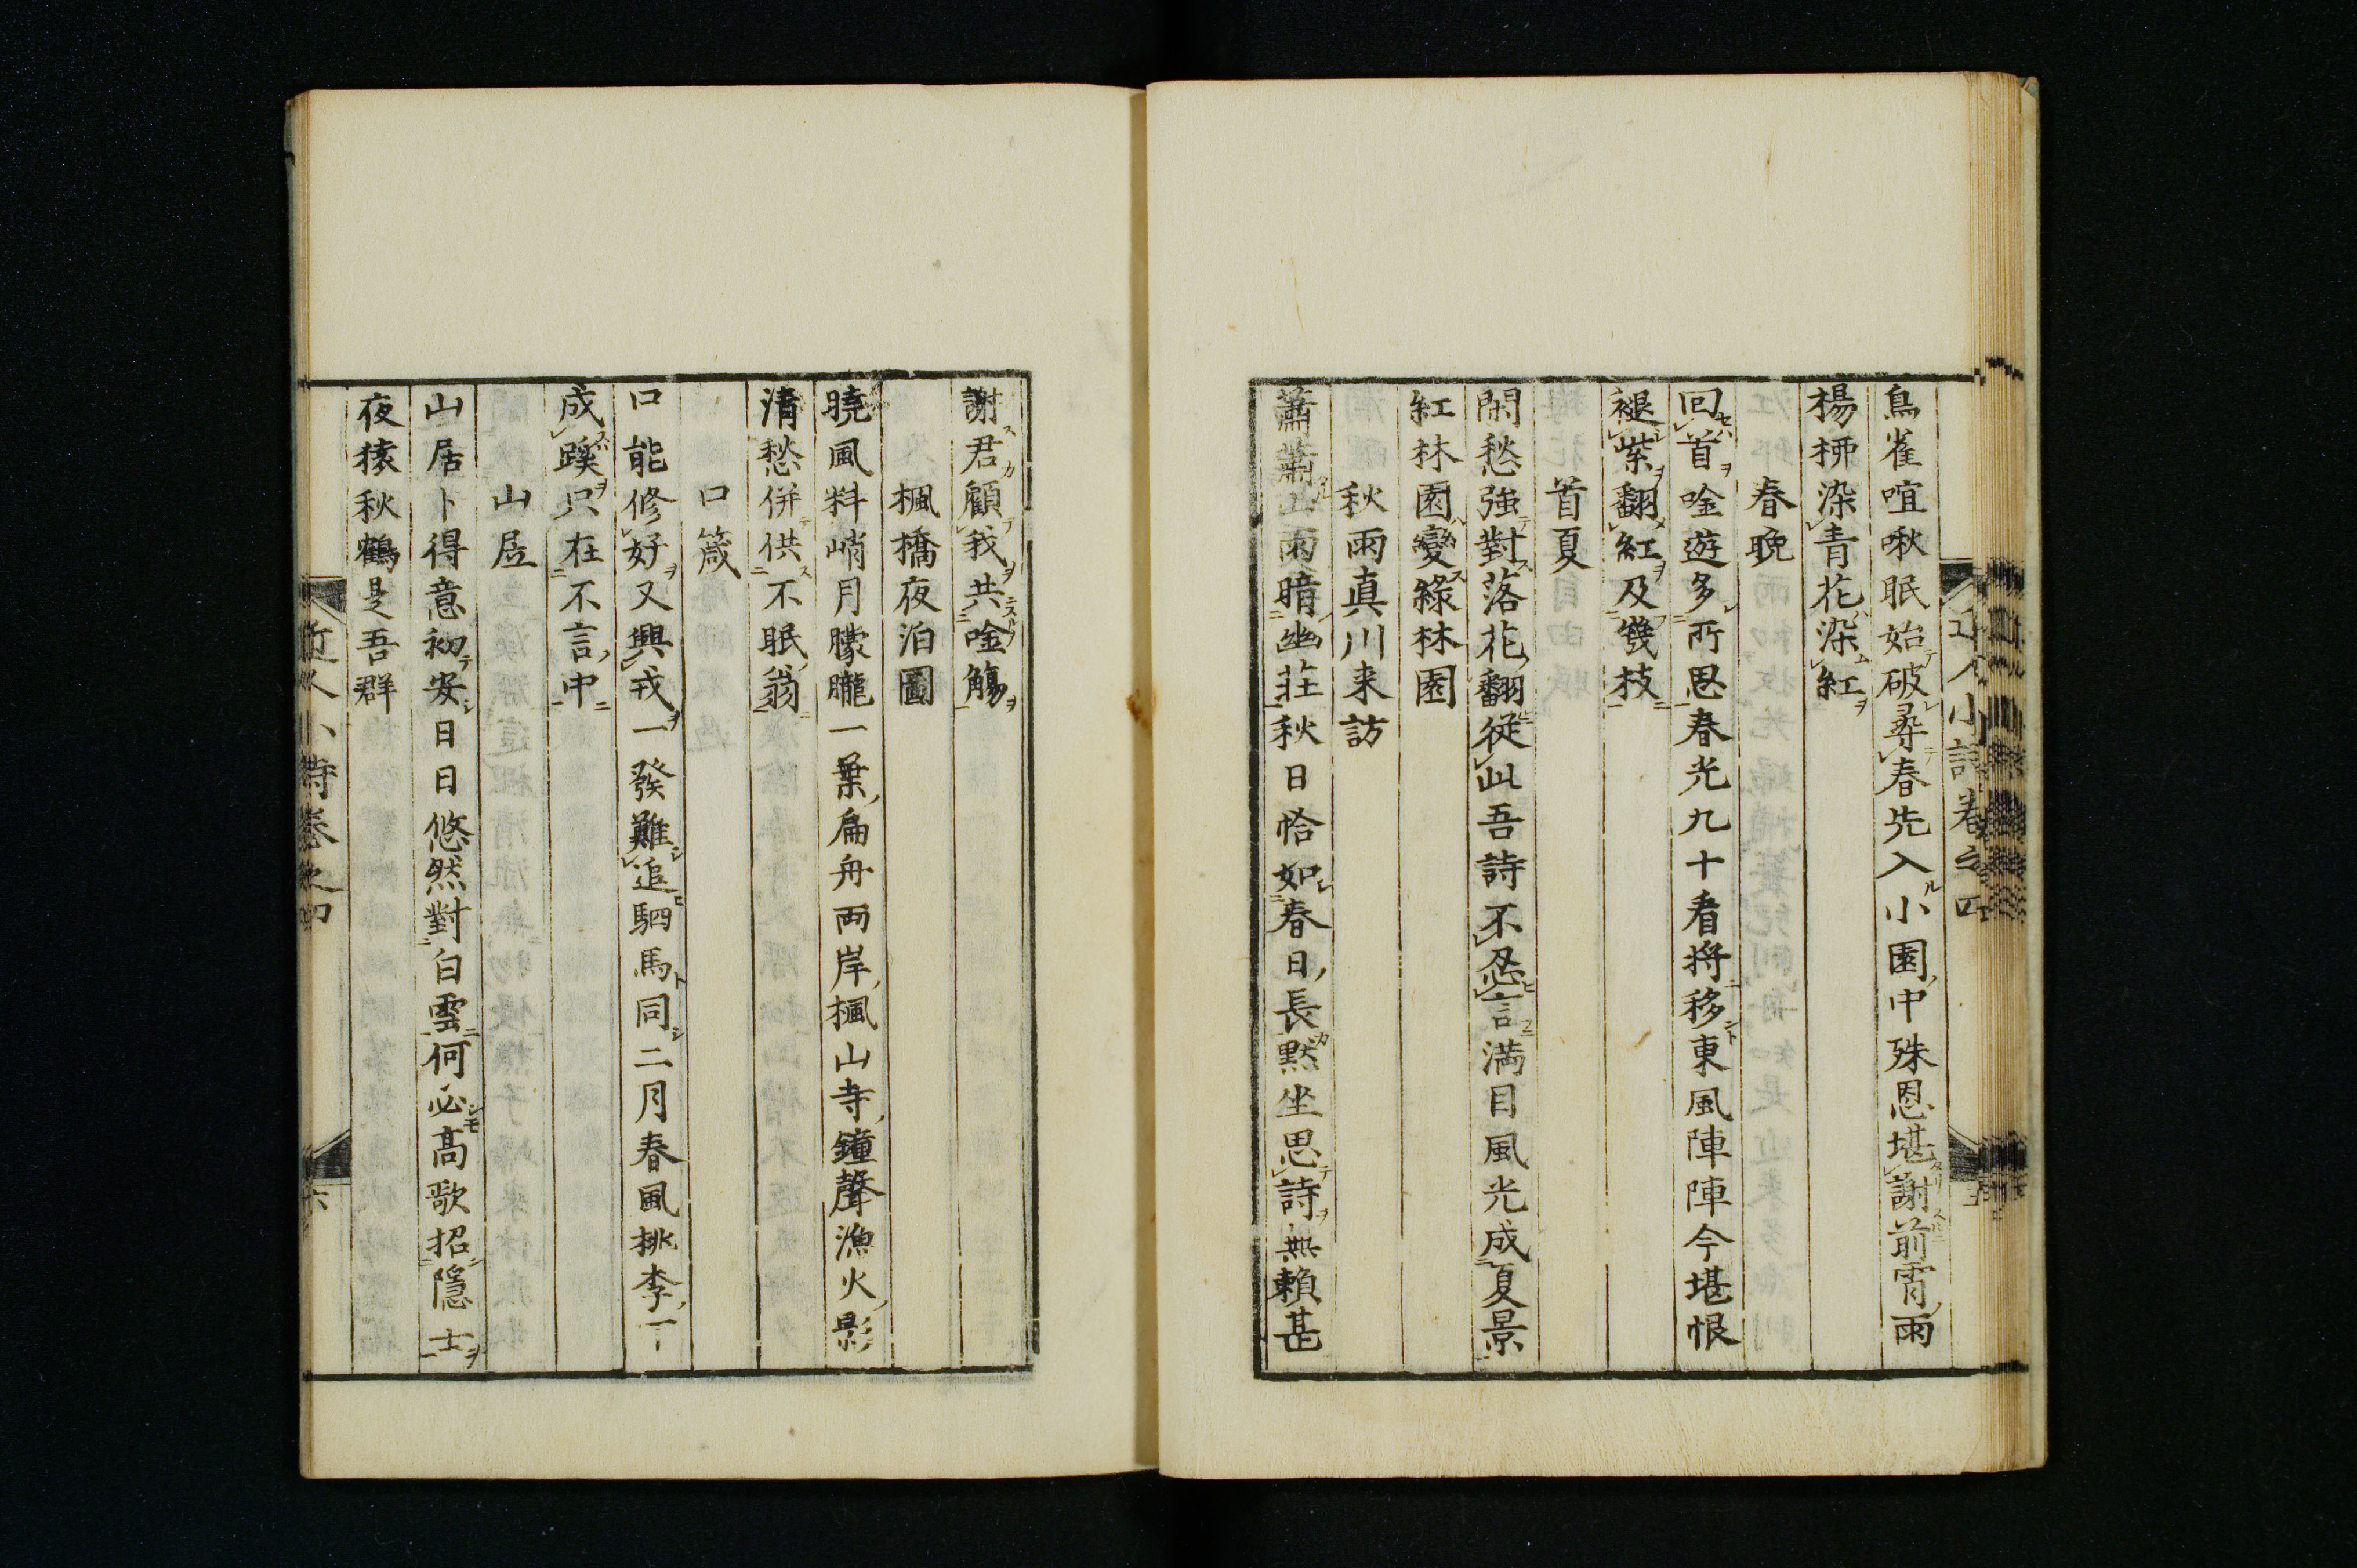 鳥雀喧啾眠始破尋春先入小園中殊恩堪謝前宵雨
楊栁染青花染紅
春晩
回首唫遊多所思春光九十看將移東風陣陣今堪恨
褪紫翻紅及幾枝
首夏
閑愁強對落花翻從此吾詩不忍言満目風光成夏景
紅林園變綠林園
秋雨真川来訪
蕭蕭山雨暗幽莊秋日恰如春日長黙坐思詩無賴甚
謝君顧我共唫觴
楓橋夜泊圖
曉風料峭月朦朧一葉扁舟両岸楓山寺鐘聲漁火影
清愁併供不眠翁
口箴
口能修好又興戎一發難追駟馬同二月春風桃李下
成蹊只在不言中
山居
山居卜得意初安日日悠然對白雲何必高歌招隱士
夜猿秋鶴是吾群
近人小詩卷之四
六